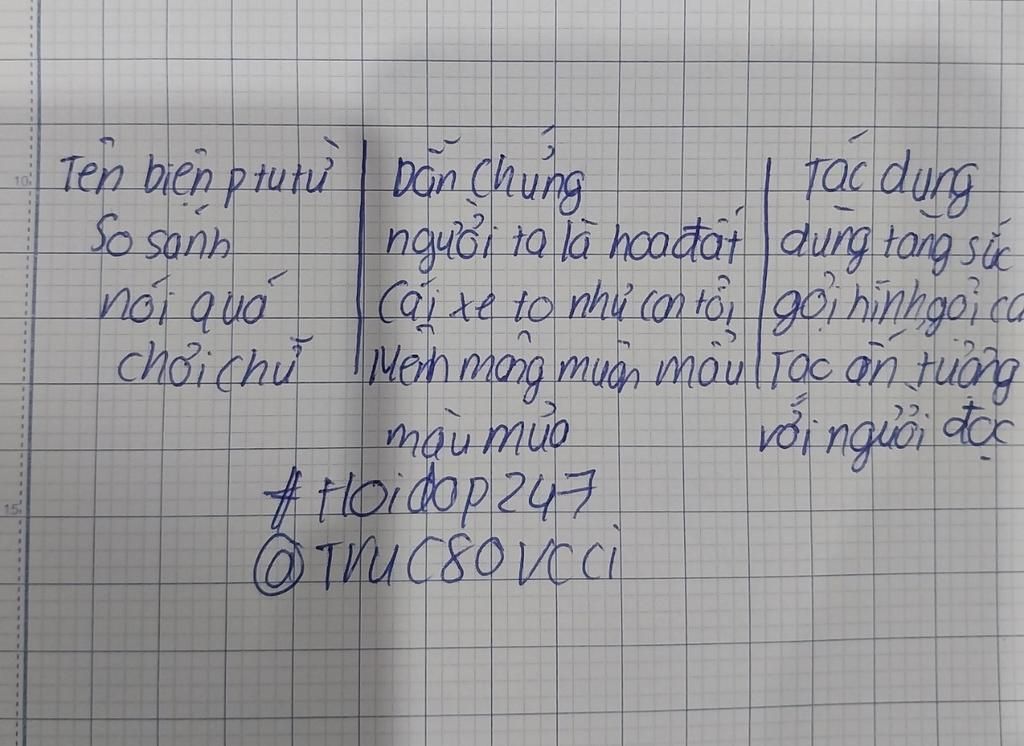 Tên biện ptutừ | Dẫn Chứng | Tác dụng
So sánh | người ta là hoa đất | dùng tăng sức
nói quá | Cái xe to như con tôi | gợi hình gợi cả
chơi chữ | Mênh mông muôn mẫu | Tạc ấn tượng
màu mưa | với người đọc
# Hoidap247
@Truc80vcci
10
15